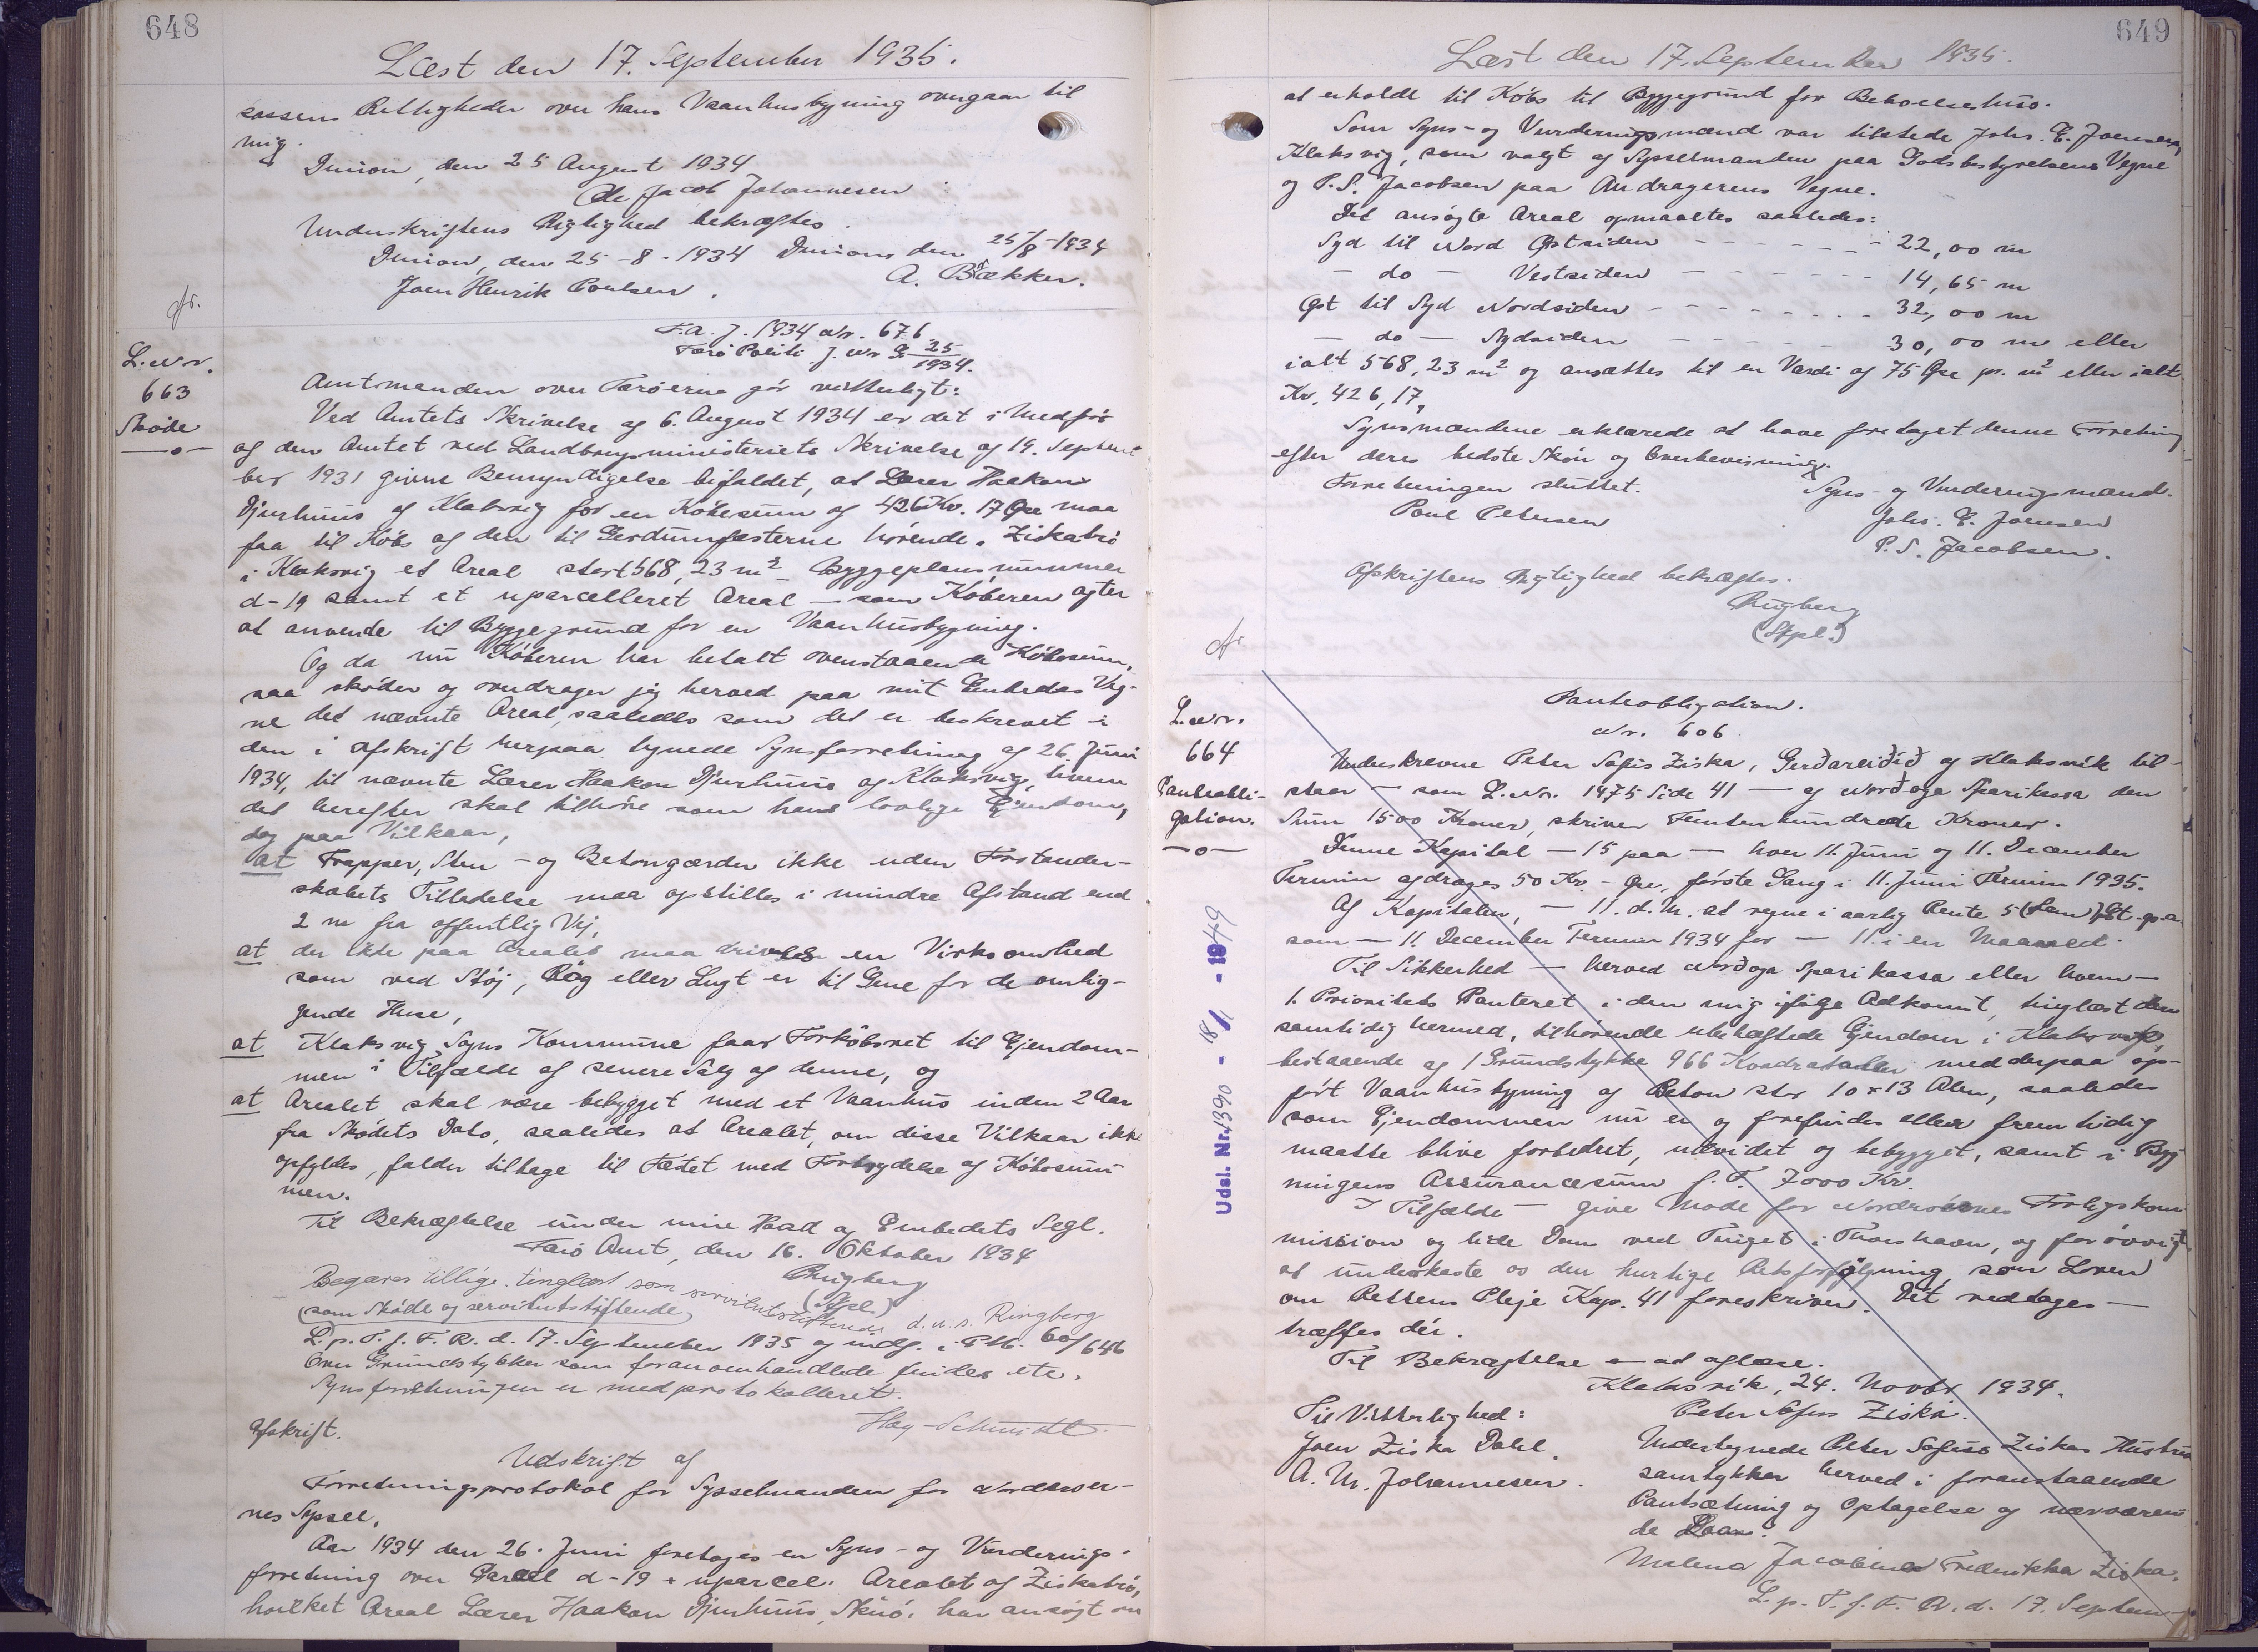 648
Læst den 17. September 1935.
kassens Rettigheder over hans Vaanhusbygning overgaar til
mig.
den 25 August 1934
Jacob Johannesen
Underskriftens Rigtighed bekræftes.
den 25-8-1934 den 25/8-1934
Joen Henrik Poulsen. A. Bækker.
L.Nr.
663
Skøde
—o—
F.A. J. 1934 Nr. 676
Færø Politi J. Nr G. 25/1934.
Amtmanden over Færøerne gør vitterligt:
Ved Amtets Skrivelse af 6. August 1934 er det i Medfør
af den Amtet ved Landbrugsministeriets Skrivelse af 19. Septem
ber 1931 givne Bemyndigelse bifaldet, at Lærer Haakon
Djurhuus af Klaksvig for en Købesum af 426 Kr. 17 Øre maa
faa til Købs af den til Gerdumfæsterne hørende. Ziskatrø
i Klaksvig et Areal stort 568,23 m² Byggeplansnummer
d-19 samt et uparcelleret Areal — som Køberen agter
at anvende til Byggegrund for en Vaanhusbygning.
Og da nu Køberen har betalt ovenstaaende Købesum,
saa skøder og overdrager jeg herved paa mit Embedes Veg-
ne det nævnte Areal, saaledes som det er beskrevet i
den i Afskrift herpaa tegnede Synsforretning af 26. Juni
1934, til nævnte Lærer Haakon Djurhuus af Klaksvig, hvem
det herefter skal tilhøre som hans lovlige Ejendom,
dog paa Vilkaar,
at Trapper, Sten- og Betongærder ikke uden Forstander-
skabets Tilladelse maa opstilles i mindre Afstand end
2 m fra offentlig Vej,
at der ikke paa Arealet maa drives en Virksomhed
som ved Støj, Røg eller Lugt er til Gene for de omlig-
gende Huse,
at Klaksvig Sogns Kommune faar Forkøbsret til Ejendom-
men i Tilfælde af senere Salg af denne, og
at Arealet skal være bebygget med et Vaanhus inden 2 Aar
fra Skødets Dato, saaledes at Arealet, om disse Vilkaar ikke
opfyldes, falder tilbage til Fæstet med Fortrydelse af Købesum
men.
Til Bekræftelse under min Haand og Embedets Segl.
Færø Amt, den 16. Oktober 1934
Ringberg
(Stpl.)
Begæres tillige tinglæst som servitutstiftende d.u.s. Ringberg
(som Skøde og servitutstiftende)
L. p. T. f. F. R. d. 17. September 1935 og indf. i P.M. 60/646
Over Grundstykker som foranomhandlede findes etc.
Synsforretningen er medprotokolleret.
Hey-Schmidt
Afskrift.
Udskrift af
Forretningsprotokol for Sysselmanden for Norderøer-
nes Syssel.
Aar 1934 den 26. Juni foretages en Syns- og Vurderings-
forretning over Parcel d-19 + uparcel. Arealet af Ziskatrø,
hvilket Areal Lærer Haakon Djurhuus, har ansøgt om
649
Læst den 17. September 1935.
at erholde til Købs til Byggegrund for Beboelseshus.
Som Syns- og Vurderingsmænd var tilstede Johs. E. Joensen,
Klaksvig, som valgt af Sysselmanden paa Godsbestyrelsens Vegne
og P.S. Jacobsen paa Andragerens Vegne.
Det ansøgte Areal opmaaltes saaledes:
Syd til Nord Østsiden - - - - - - 22,00 m
— do — Vestsiden - - - - - - 14,65 m
Øst til Syd Nordsiden - - - - - - 32,00 m
— do — Sydsiden - - - - - - 30,00 m eller
ialt 568,23 m² og ansættes til en Værdi af 75 Øre pr. m² eller ialt
Kr. 426,17,
Synsmændene erklærede at have foretaget denne Forretning
efter deres bedste Skøn og Overbevisning.
Forretningen sluttet. Syns- og Vurderingsmænd.
Poul Petersen Johs. E. Joensen
P.S. Jacobsen.
Afskriftens Rigtighed bekræftes.
Ringberg
(Stpl.)
L.Nr.
664
Panteobli-
gation.
—o—
Udsl. Nr. 1390 - 18/11 - 1949
Panteobligation.
Nr. 606
Underskrevne Peter Sofus Ziska, Gerðareiðið af Klaksvik til-
staar — som L.Nr. 1475 Side 41 — af Norðoya Sparikassa den
Sum 1500 Kroner, skriver Femtenhundrede Kroner.
Denne Kapital — 15 paa — hver 11. Juni og 11. December
Termin afdrages 50 Kr. - Øre, første Gang i 11. Juni Termin 1935.
Af Kapitalen, — 11. d. M. at regne i aarlig Rente 5 (Fem) pCt. p.a.
som — 11 December Termin 1934 for — 11. i en Maaned.
Til Sikkerhed — herved Norðoya Sparikassa eller hvem —
1. Prioritets Panteret i den mig ifølge Adkomst, tinglæst den
samtidig hermed, tilhørende ubehæftede Ejendom i Klaksvik,
bestaaende af 1 Grundstykke 966 Kvadratalen med derpaa op-
ført Vaanhusbygning af Beton stor 10 x 13 Alen, saaledes
som Ejendommen nu er og forefindes eller fremtidig
maatte blive forbedret, udvidet og bebygget, samt i Byg
ningens Assurancesum f. T. 7000 Kr.
I Tilfælde — give Møde for Norderøernes Forligskom
mission og lide Dom ved Tinget i Thorshavn, og forøvrigt
at underkaste os den hurtige Retsforfølgning, som Loven
om Rettens Pleje Kap. 41 foreskriver. Det vedtages —
træffes dér.
Til Bekræftelse — at aflæse.
Klaksvik, 24. Novbr 1934.
Til Vitterlighed: Peter Sofus Ziska.
Joen Ziska Dahl. Undertegnede Peter Sofus Ziskas Hustru
A. M. Johannesen. samtykker herved i foranstaaende
Pantsætning og Optagelse af nærværen
de Laan.
Malena Jacobina Frederikka Ziska.
L. p. T. f. F. R. d. 17. Septem-